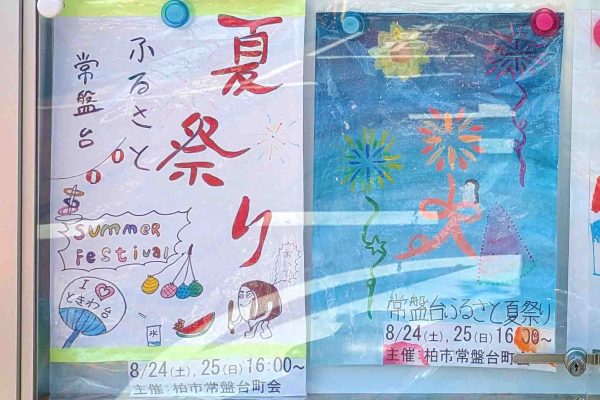 夏祭り
ふるさと
常盤台
SUMMER
FESTIVAL
おいで
I ♥
ときわ台
氷
8/24(土),25(日)16:00～
主催:柏市常盤台町会
常盤台ふるさと夏祭り
8/24(土),25(日)16:00～
主催:柏市常盤台町会